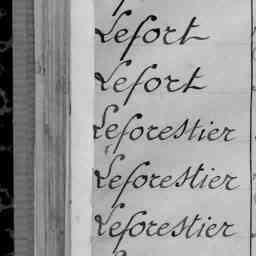 Lefort
Lefort
Leforestier
Leforestier
Leforestier